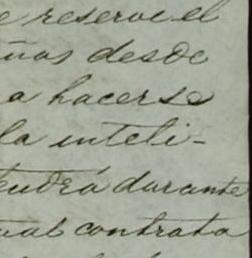 e reserve el
ñas desde
a hacerse
la inteli-
tendrá durante
ual contrata